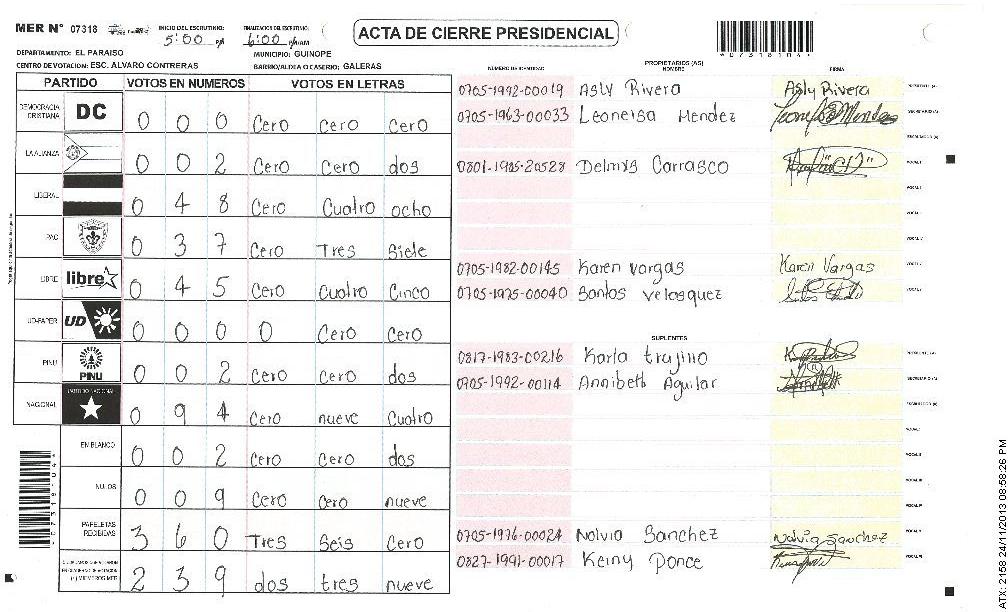 MER N° 07318 INICIO DEL ESCRUTINIO: 5:00 PM FINALIZACION DEL ESCRUTINIO: 6:00 PM/AM ACTA DE CIERRE PRESIDENCIAL
DEPARTAMENTO: EL PARAISO MUNICIPIO: GUINOPE
CENTRO DE VOTACION: ESC. ALVARO CONTRERAS BARRIO/ALDEA O CASERIO: GALERAS
PARTIDO VOTOS EN NUMEROS VOTOS EN LETRAS
DEMOCRACIA CRISTIANA DC 0 0 0 Cero Cero Cero
LA ALIANZA 0 0 2 Cero Cero dos
LIBERAL 0 4 8 Cero Cuatro ocho
PAC 0 3 7 Cero Tres Siete
LIBRE libre 0 4 5 Cero Cuatro Cinco
UD-FAPER UD 0 0 0 0 Cero Cero
PINU PINU 0 0 2 Cero Cero dos
NACIONAL PARTIDO NACIONAL 0 9 4 Cero nueve Cuatro
EN BLANCO 0 0 2 Cero Cero dos
NULOS 0 0 9 Cero Cero nueve
PAPELETAS RECIBIDAS 3 6 0 Tres Seis Cero
2 3 9 dos tres nueve
PROPIETARIOS (AS)
NÚMERO DE IDENTIDAD NOMBRE FIRMA
0705-1992-00019 Asly Rivera Asly Rivera PRESIDENTE (A)
0705-1963-00033 Leoneisa Mendez SECRETARIO (A)
ESCRUTADOR (A)
0801-1985-20528 Delmis Carrasco VOCAL I
VOCAL II
VOCAL III
VOCAL IV
0705-1982-00145 Karen Vargas Karen Vargas VOCAL V
0705-1975-00040 Santos Velasquez
SUPLENTES
0817-1983-00216 Karla trujino PRESIDENTE (A)
0705-1992-00114 Annibeth Aguilar SECRETARIO (A)
ESCRUTADOR (A)
VOCAL I
VOCAL II
VOCAL III
VOCAL IV
0705-1976-00024 Nolvia Sanchez Nolvia Sanchez VOCAL V
0827-1991-00017 Keiny Ponce VOCAL VI
ATX: 2158 24/11/2013 08:58:26 PM